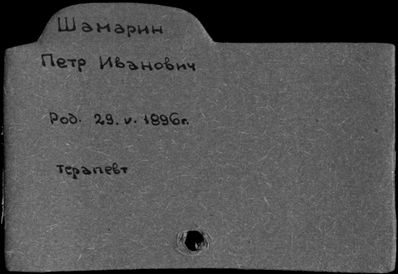 Шамарин
Петр Иванович
Род. 29. v. 1896г.
терапевт